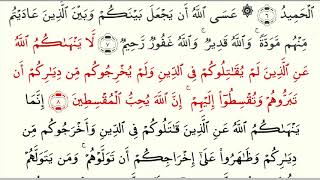 ٱلْحَمِيدُ ٦ ۞ عَسَى ٱللَّهُ أَن يَجْعَلَ بَيْنَكُمْ وَبَيْنَ ٱلَّذِينَ عَادَيْتُم
مِّنْهُم مَّوَدَّةً ۚ وَٱللَّهُ قَدِيرٌ ۚ وَٱللَّهُ غَفُورٌ رَّحِيمٌ ٧ لَّا يَنْهَىٰكُمُ ٱللَّهُ
عَنِ ٱلَّذِينَ لَمْ يُقَٰتِلُوكُمْ فِى ٱلدِّينِ وَلَمْ يُخْرِجُوكُم مِّن دِيَٰرِكُمْ أَن
تَبَرُّوهُمْ وَتُقْسِطُوٓا۟ إِلَيْهِمْ ۚ إِنَّ ٱللَّهَ يُحِبُّ ٱلْمُقْسِطِينَ ٨ إِنَّمَا
يَنْهَىٰكُمُ ٱللَّهُ عَنِ ٱلَّذِينَ قَٰتَلُوكُمْ فِى ٱلدِّينِ وَأَخْرَجُوكُم مِّن
دِيَٰرِكُمْ وَظَٰهَرُوا۟ عَلَىٰٓ إِخْرَاجِكُمْ أَن تَوَلَّوْهُمْ ۚ وَمَن يَتَوَلَّهُمْ